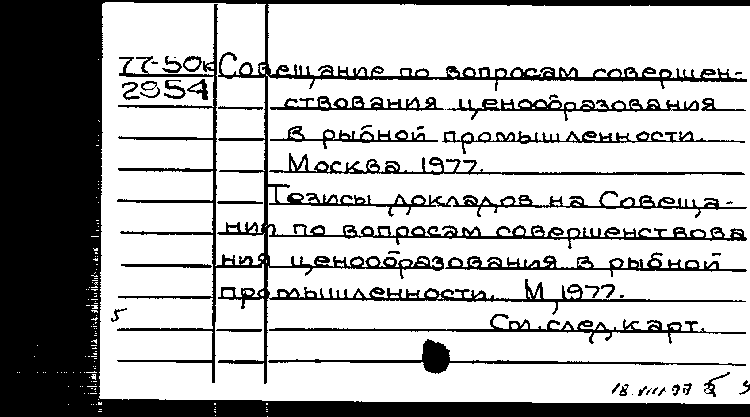 77-50к Совещание по вопросам совершен-
2954 ствования ценообразования
в рыбной промышленности.
Москва. 1977.
Тезисы докладов на Совеща-
нии по вопросам совершенствова
ния ценообразования в рыбной
промышленности. М, 1977.
См. след. карт.
5
18.VIII